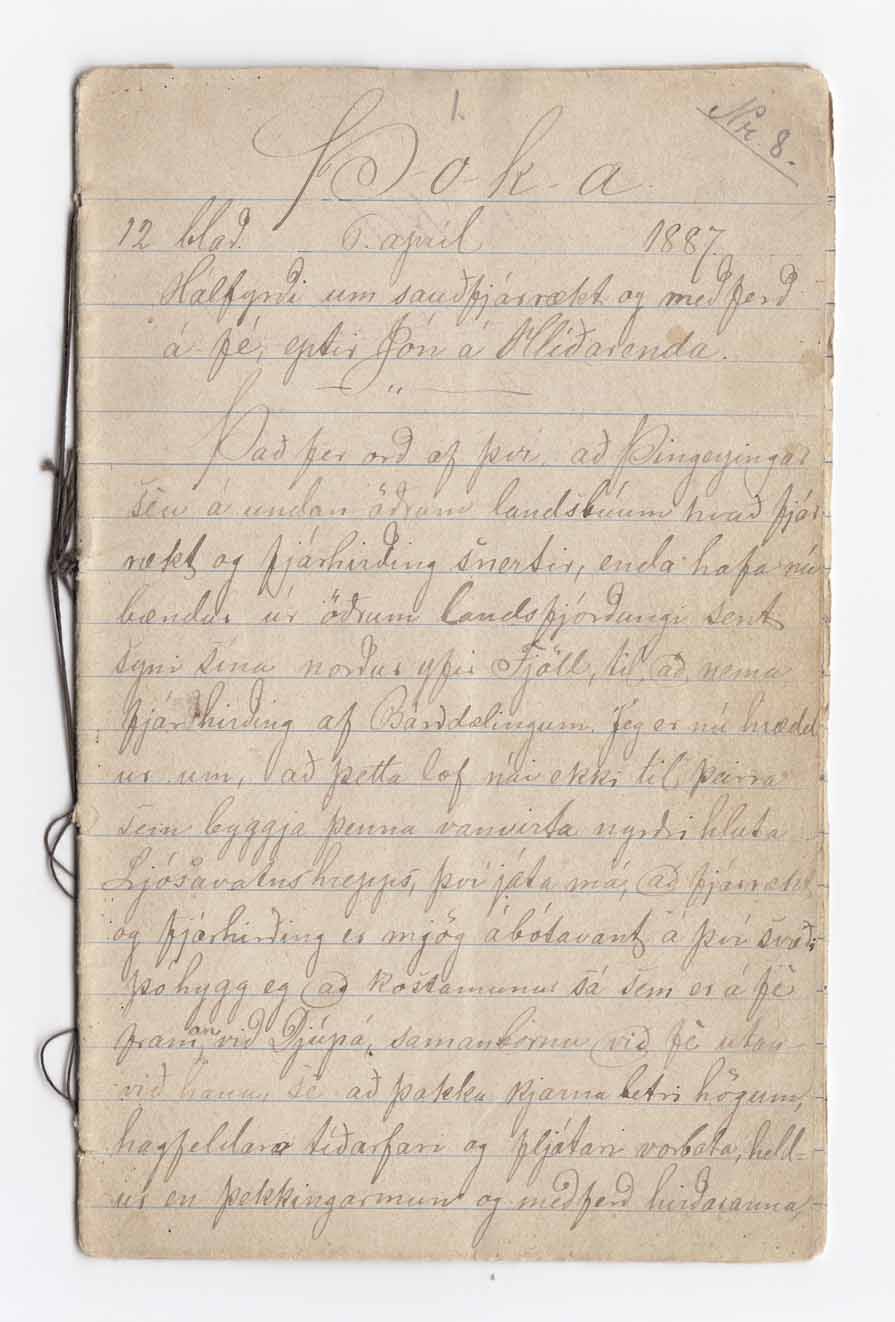 1.
Nr. 8.
Þ-o-k-a.
12 blað. 6. apríl 1887.
Hálfyrði um sauðfjárrækt og meðferð
á fé, eptir Jón á Hlíðarenda.
Það fer orð af því, að Þingeyingar
séu á undan öðrum landsbúum hvað fjár-
rækt og fjárhirðing snertir, enda hafa nú
bændur úr öðrum landsfjórðungi sent
syni sína norður yfir Fjöll, til að nema
fjárhirðing af Bárðdælingum. Jeg er nú hrædd-
ur um, að þetta lof nái ekki til þeirra
sem byggja þenna vanvirta nyrðri hluta
Ljósavatnshrepps, því játa má, að fjárrækt
og fjárhirðing er mjög ábótavant á því svæði
þó hygg eg að kostamunur sá sem er á fé
framan við Djúpá, samanbornu við fé utan
við hana, sé að þakka kjarnabetri högum,
hagfeldara tíðarfari og fljótari vorbata, held-
ur en þekkingarmun og meðferð hirðaranna,